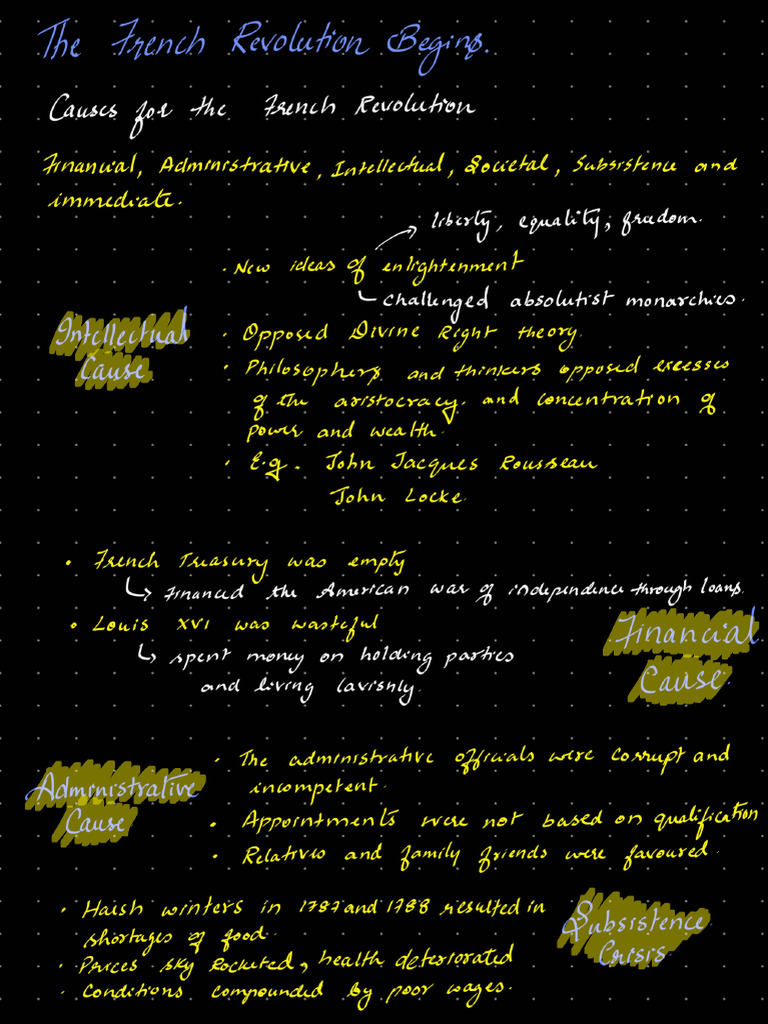 The French Revolution Begins.
Causes for the French Revolution
Financial, Administrative, Intellectual, Societal, Subsistence and
immediate.
liberty, equality, freedom.
• New ideas of enlightenment
challenged absolutist monarchies.
Intellectual
Cause
• Opposed Divine Right theory.
• Philosophers and thinkers opposed excesses
of the aristocracy. and concentration of
power and wealth.
• E.g. John Jacques Rousseau
John Locke.
• French Treasury was empty
Financed the American war of independence through loans.
• Louis XVI was wasteful
spent money on holding parties
and living lavishly.
Financial
Cause.
Administrative
Cause
• The administrative officials were corrupt and
incompetent.
• Appointments were not based on qualification
• Relatives and family friends were favoured.
• Harsh winters in 1787 and 1788 resulted in
shortages of food.
• Prices sky rocketed, health deteriorated
• Conditions compounded by poor wages.
Subsistence
Crisis